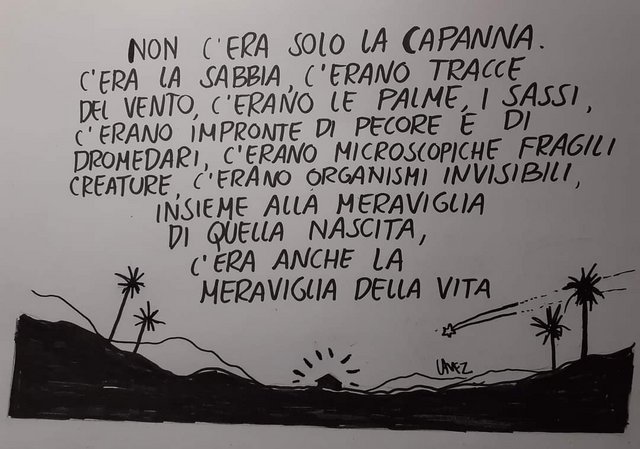 NON C'ERA SOLO LA CAPANNA.
C'ERA LA SABBIA, C'ERANO TRACCE
DEL VENTO, C'ERANO LE PALME, I SASSI,
C'ERANO IMPRONTE DI PECORE E DI
DROMEDARI, C'ERANO MICROSCOPICHE FRAGILI
CREATURE, C'ERANO ORGANISMI INVISIBILI,
INSIEME ALLA MERAVIGLIA
DI QUELLA NASCITA,
C'ERA ANCHE LA
MERAVIGLIA DELLA VITA